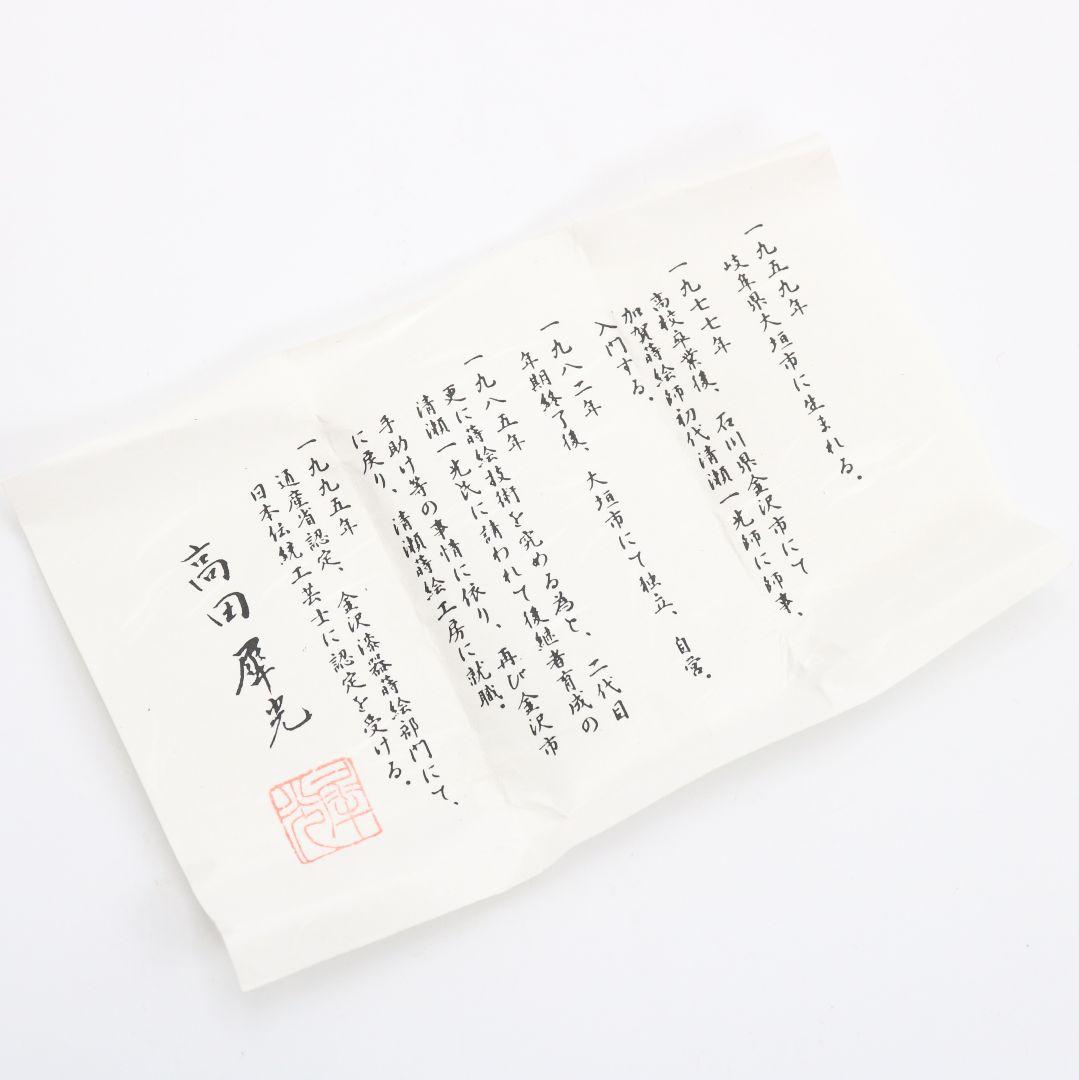 一九五九年
岐阜県大垣市に生まれる。
一九七七年
高校卒業後、石川県金沢市にて
加賀蒔絵師初代清瀬一光師に師事、
入門する。
一九八二年
年期終了後、大垣市にて独立、自営。
一九八五年
更に蒔絵技術を究める為と、二代目
清瀬一光氏に請われて後継者育成の
手助け等の事情に依り、再び金沢市
に戻り、清瀬蒔絵工房に就職。
一九九五年
通産省認定、金沢漆器蒔絵部門にて、
日本伝統工芸士に認定を受ける。
高田犀光
犀光